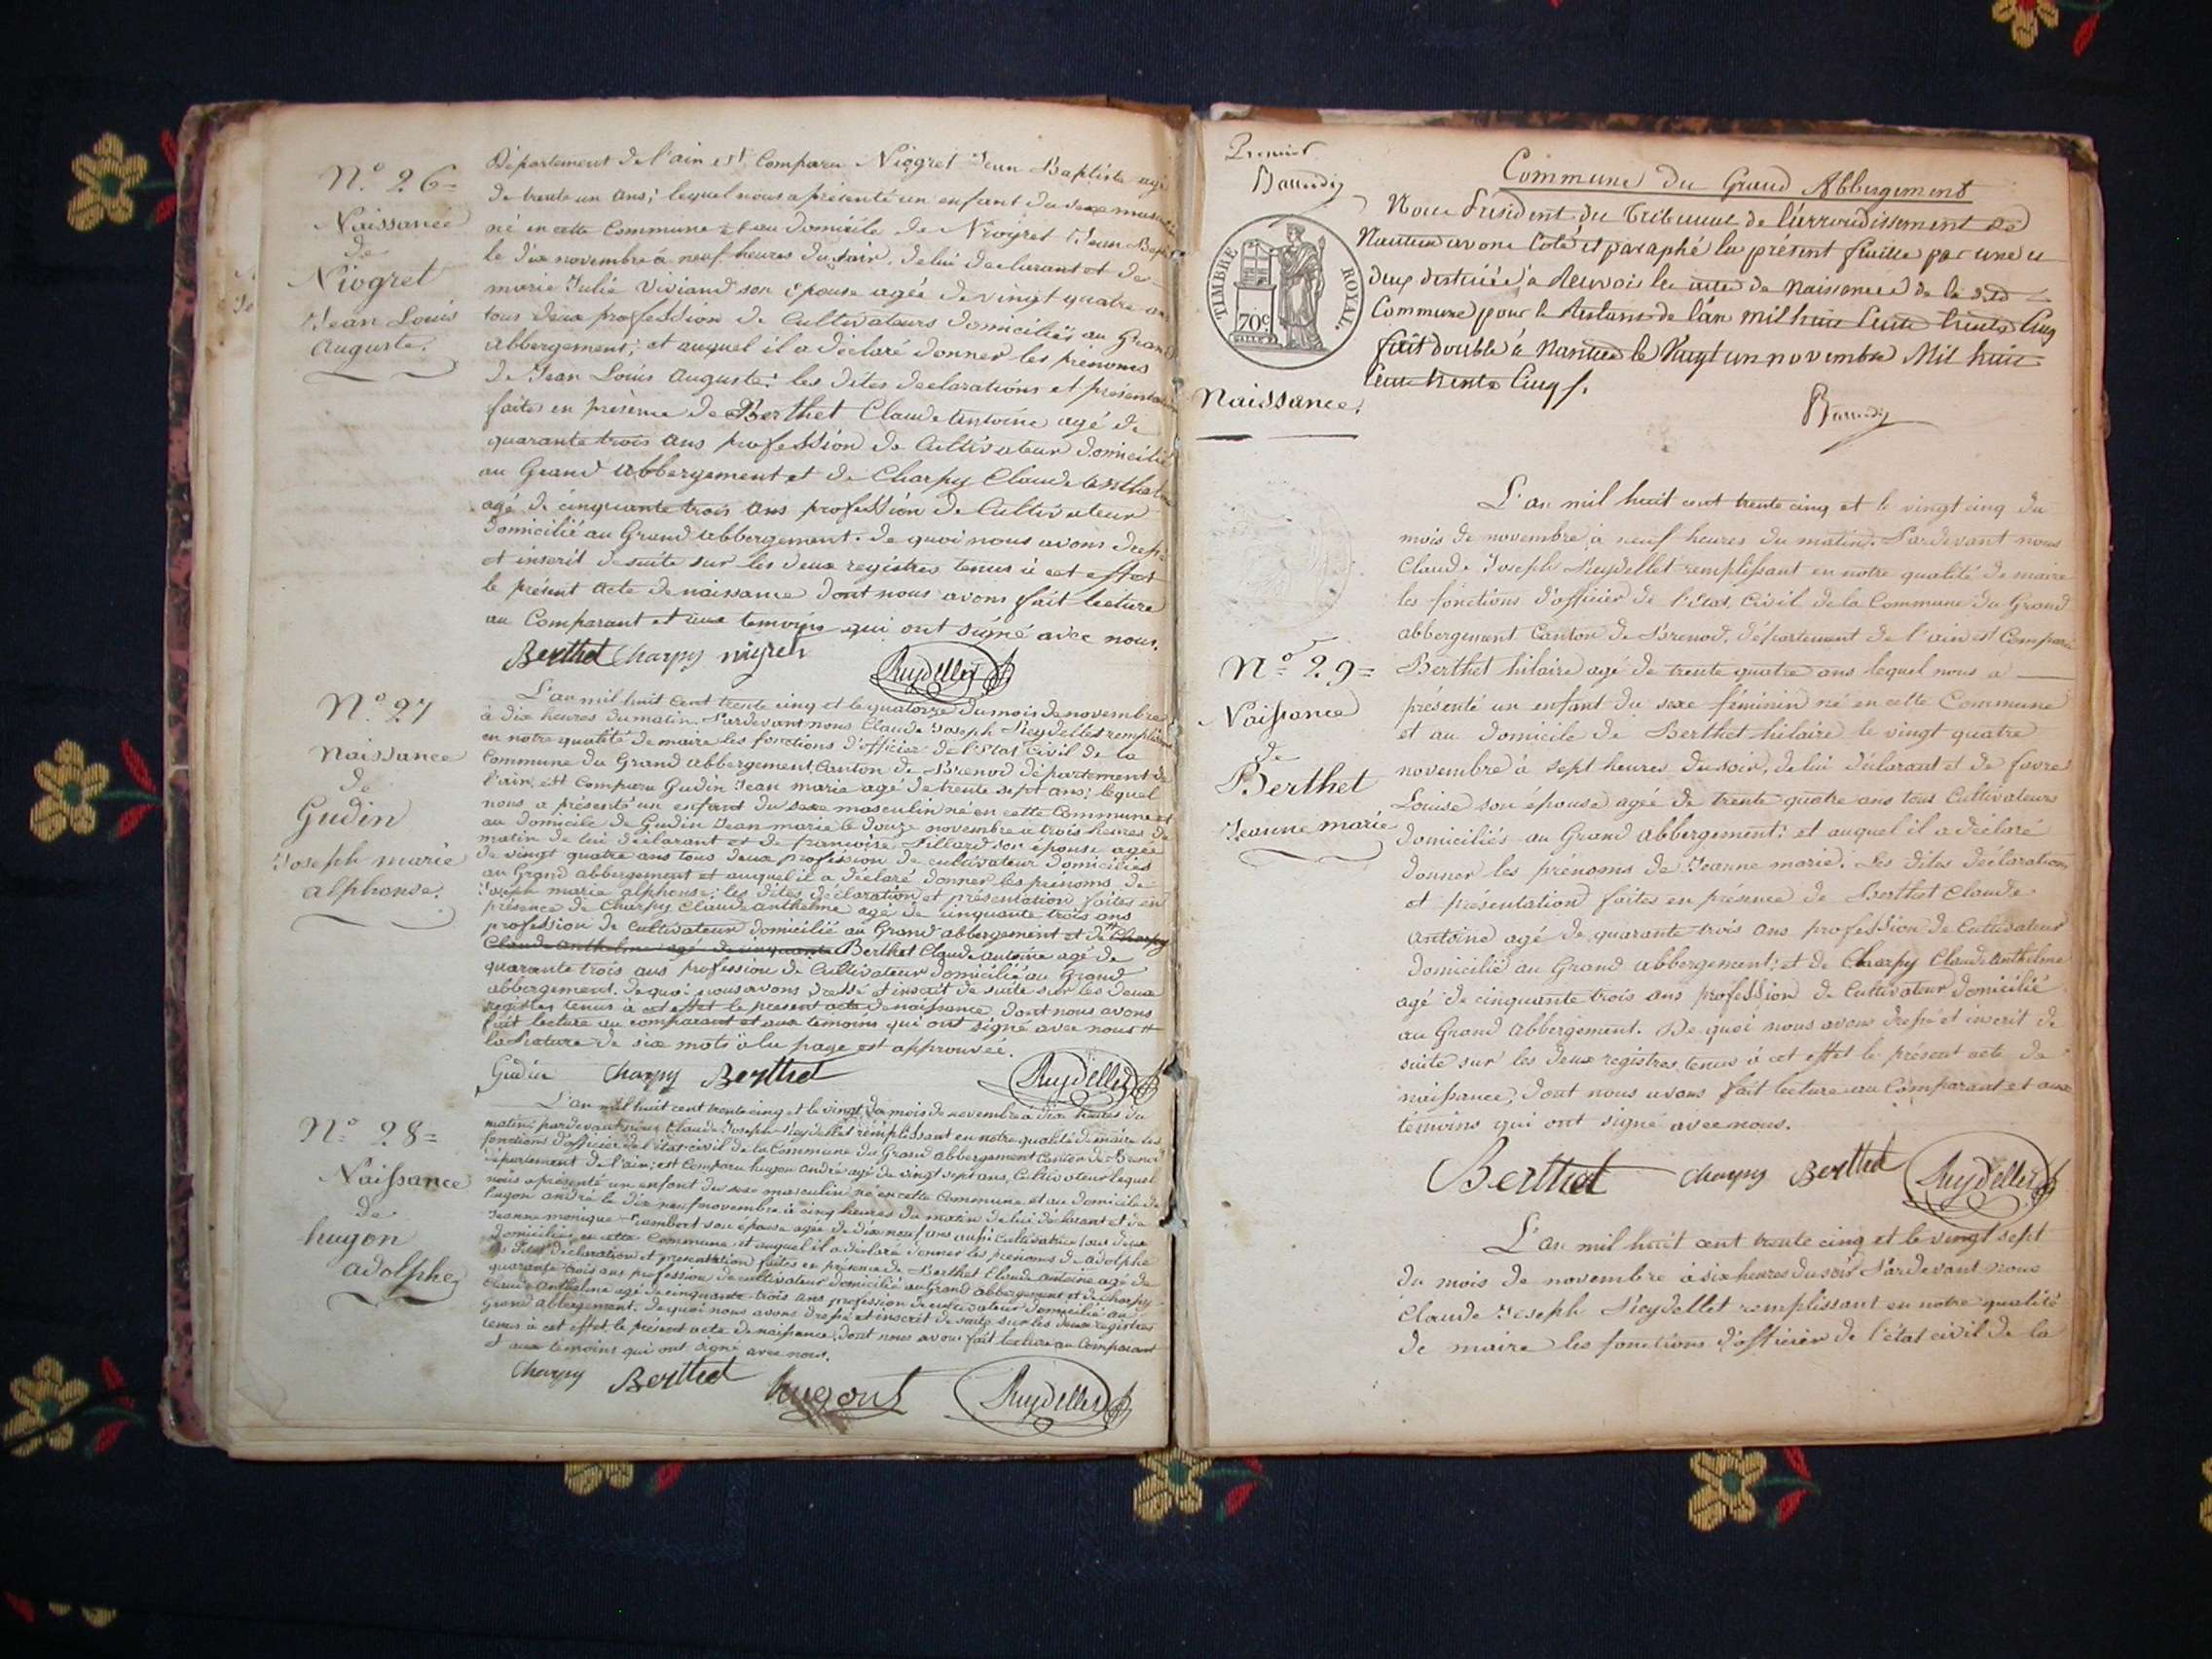 N.° 26=
Naissance
de
Niogret
Jean Louis
Auguste.
Département de l'ain est Comparu Niogret Jean Baptiste agé
de trente un ans; lequel nous a présenté un enfant du sexe
né en cette Commune et au domicile de Niogret Jean
le dix novembre à neuf heures du soir. de lui declarant et de
marie Julie Viviand son épouse agée de vingt quatre
tous deux profession de Cultivateurs domiciliés au
abbergement; et auquel il a déclaré donner les prénoms
de Jean Louis Auguste: les dites declarations et
faites en présence de Berthet Claude Antoine agé de
quarante trois ans profession de Cultivateur domicilié
au Grand Abbergement et de Charpy Claude
agé de cinquante trois ans profession de Cultivateur
domicilié au Grand Abbergement. de quoi nous avons
et inscrit de suite sur les deux registres tenus à cet effet
le présent acte de naissance dont nous avons fait lecture
au Comparant et aux temoins qui ont signé avec nous.
Berthet Charpy Reydellet
N.° 27
Naissance
de
Gudin
Joseph marie
alphonse.
L'an mil huit cent trente cinq et le quatorze du mois de novembre
à dix heures du matin. Pardevant nous Claude Joseph Reydellet
en notre qualité de maire les fonctions d'officier de l'état Civil de la
Commune du Grand abbergement, Canton de Brenod département de
l'ain, est Comparu Gudin Jean marie agé de trente sept ans; lequel
nous a présenté un enfant du sexe masculin né en cette Commune et
au domicile de Gudin Jean marie le douze novembre a trois heures du
matin de lui déclarant et de francoise Pillard son épouse agée
de vingt quatre ans tous deux profession de cultivateur domiciliés
au Grand abbergement et auquel il a déclaré donner les prénoms de
Joseph marie alphonse; les dites déclaration et présentation faites en
présence de Charpy Claude anthelme agé de cinquante trois ans
profession de Cultivateur domicilié au Grand abbergement et de Charpy
Claude anthelme agé de cinquante Berthet Claude antoine agé de
quarante trois ans profession de Cultivateur domicilié au Grand
abbergement. de quoi nous avons dressé et inscrit de suite sur les deux
registres tenus à cet effet le present acte de naissance, dont nous avons
fait lecture au comparant et aux temoins qui ont signé avec nous
la rature de six mots à la page est approuvée.
Gudin Charpy Berthet Reydellet
N.° 28=
Naissance
de
hugon
adolphe
L'an mil huit cent trente cinq et le vingt du mois de novembre à dix heures du
matin; pardevant nous Claude Joseph Reydellet remplissant en notre qualité de maire les
fonctions d'officier de l'état civil de la Commune du Grand abbergement Canton de Brenod
département de l'ain; est Comparu hugon andré agé de vingt sept ans, Cultivateur lequel
nous a présenté un enfant du sexe masculin né en cette Commune et au domicile de
hugon andré le dix neuf novembre à cinq heures du matin de lui déclarant et de
Jeanne monique son épouse agée de dix neuf ans aussi Cultivatrice tous deux
domiciliés en cette Commune, et auquel il a déclaré donner les prénoms de adolphe
les dites déclaration et presentation faites en présence de Berthet Claude antoine agé de
quarante trois ans profession de cultivateur domicilié au Grand abbergement et de Charpy
Claude anthelme agé de cinquante trois ans profession de cultivateur domicilié au
Grand abbergement. de quoi nous avons dressé et inscrit de suite sur les deux registres
tenus à cet effet le présent acte de naissance, dont nous avons fait lecture au Comparant
et aux témoins qui ont signé avec nous.
Charpy Berthet hugon Reydellet
Premier
Commune du Grand Abbergement
Nous Président du Tribunal de l'arrondissement de
Nantua avons Coté et paraphé la présent feuille par une
deux destinée à Recevoir les actes de Naissances de la dite
Commune pour le Restans de l'an mil huit Cents trente Cinq
fait double à Nantua le Vingt un novembre Mil huit
Cent trente Cinq
TIMBRE ROYAL.
70c
Naissance.
N.° 29=
Naissance
de
Berthet
Jeanne marie
L'an mil huit cent trente cinq et le vingt cinq du
mois de novembre à neuf heures du matin. Pardevant nous
Claude Joseph Reydellet remplissant en notre qualité de maire
les fonctions d'officier de l'état Civil de la Commune du Grand
abbergement Canton de Brenod, département de l'ain est Comparu
Berthet hilaire agé de trente quatre ans lequel nous a
présenté un enfant du sexe féminin né en cette Commune
et au domicile de Berthet hilaire le vingt quatre
novembre à sept heures du soir, de lui déclarant et de favre
Louise son épouse agée de trente quatre ans tous Cultivateurs
domiciliés au Grand abbergement: et auquel il a déclaré
donner les prénoms de Jeanne marie. Les dites déclaration
et présentation faites en présence de Berthet Claude
antoine agé de quarante trois ans profession de Cultivateur
domicilié au Grand abbergement; et de Charpy Claude anthelme
agé de cinquante trois ans profession de Cultivateur domicilié
au Grand Abbergement. De quoi nous avons dressé et inscrit de
suite sur les deux registres tenus à cet effet le présent acte de
naissance, dont nous avons fait lecture au Comparant et aux
témoins qui ont signé avec nous.
Berthet Charpy Berthet Reydellet
L'an mil huit cent trente cinq et le vingt sept
du mois de novembre à six heures du soir Pardevant nous
Claude Joseph Reydellet remplissant en notre qualité
de maire les fonctions d'officier de l'état civil de la